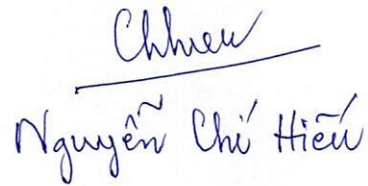 Chhieu
Nguyễn Chí Hiếu